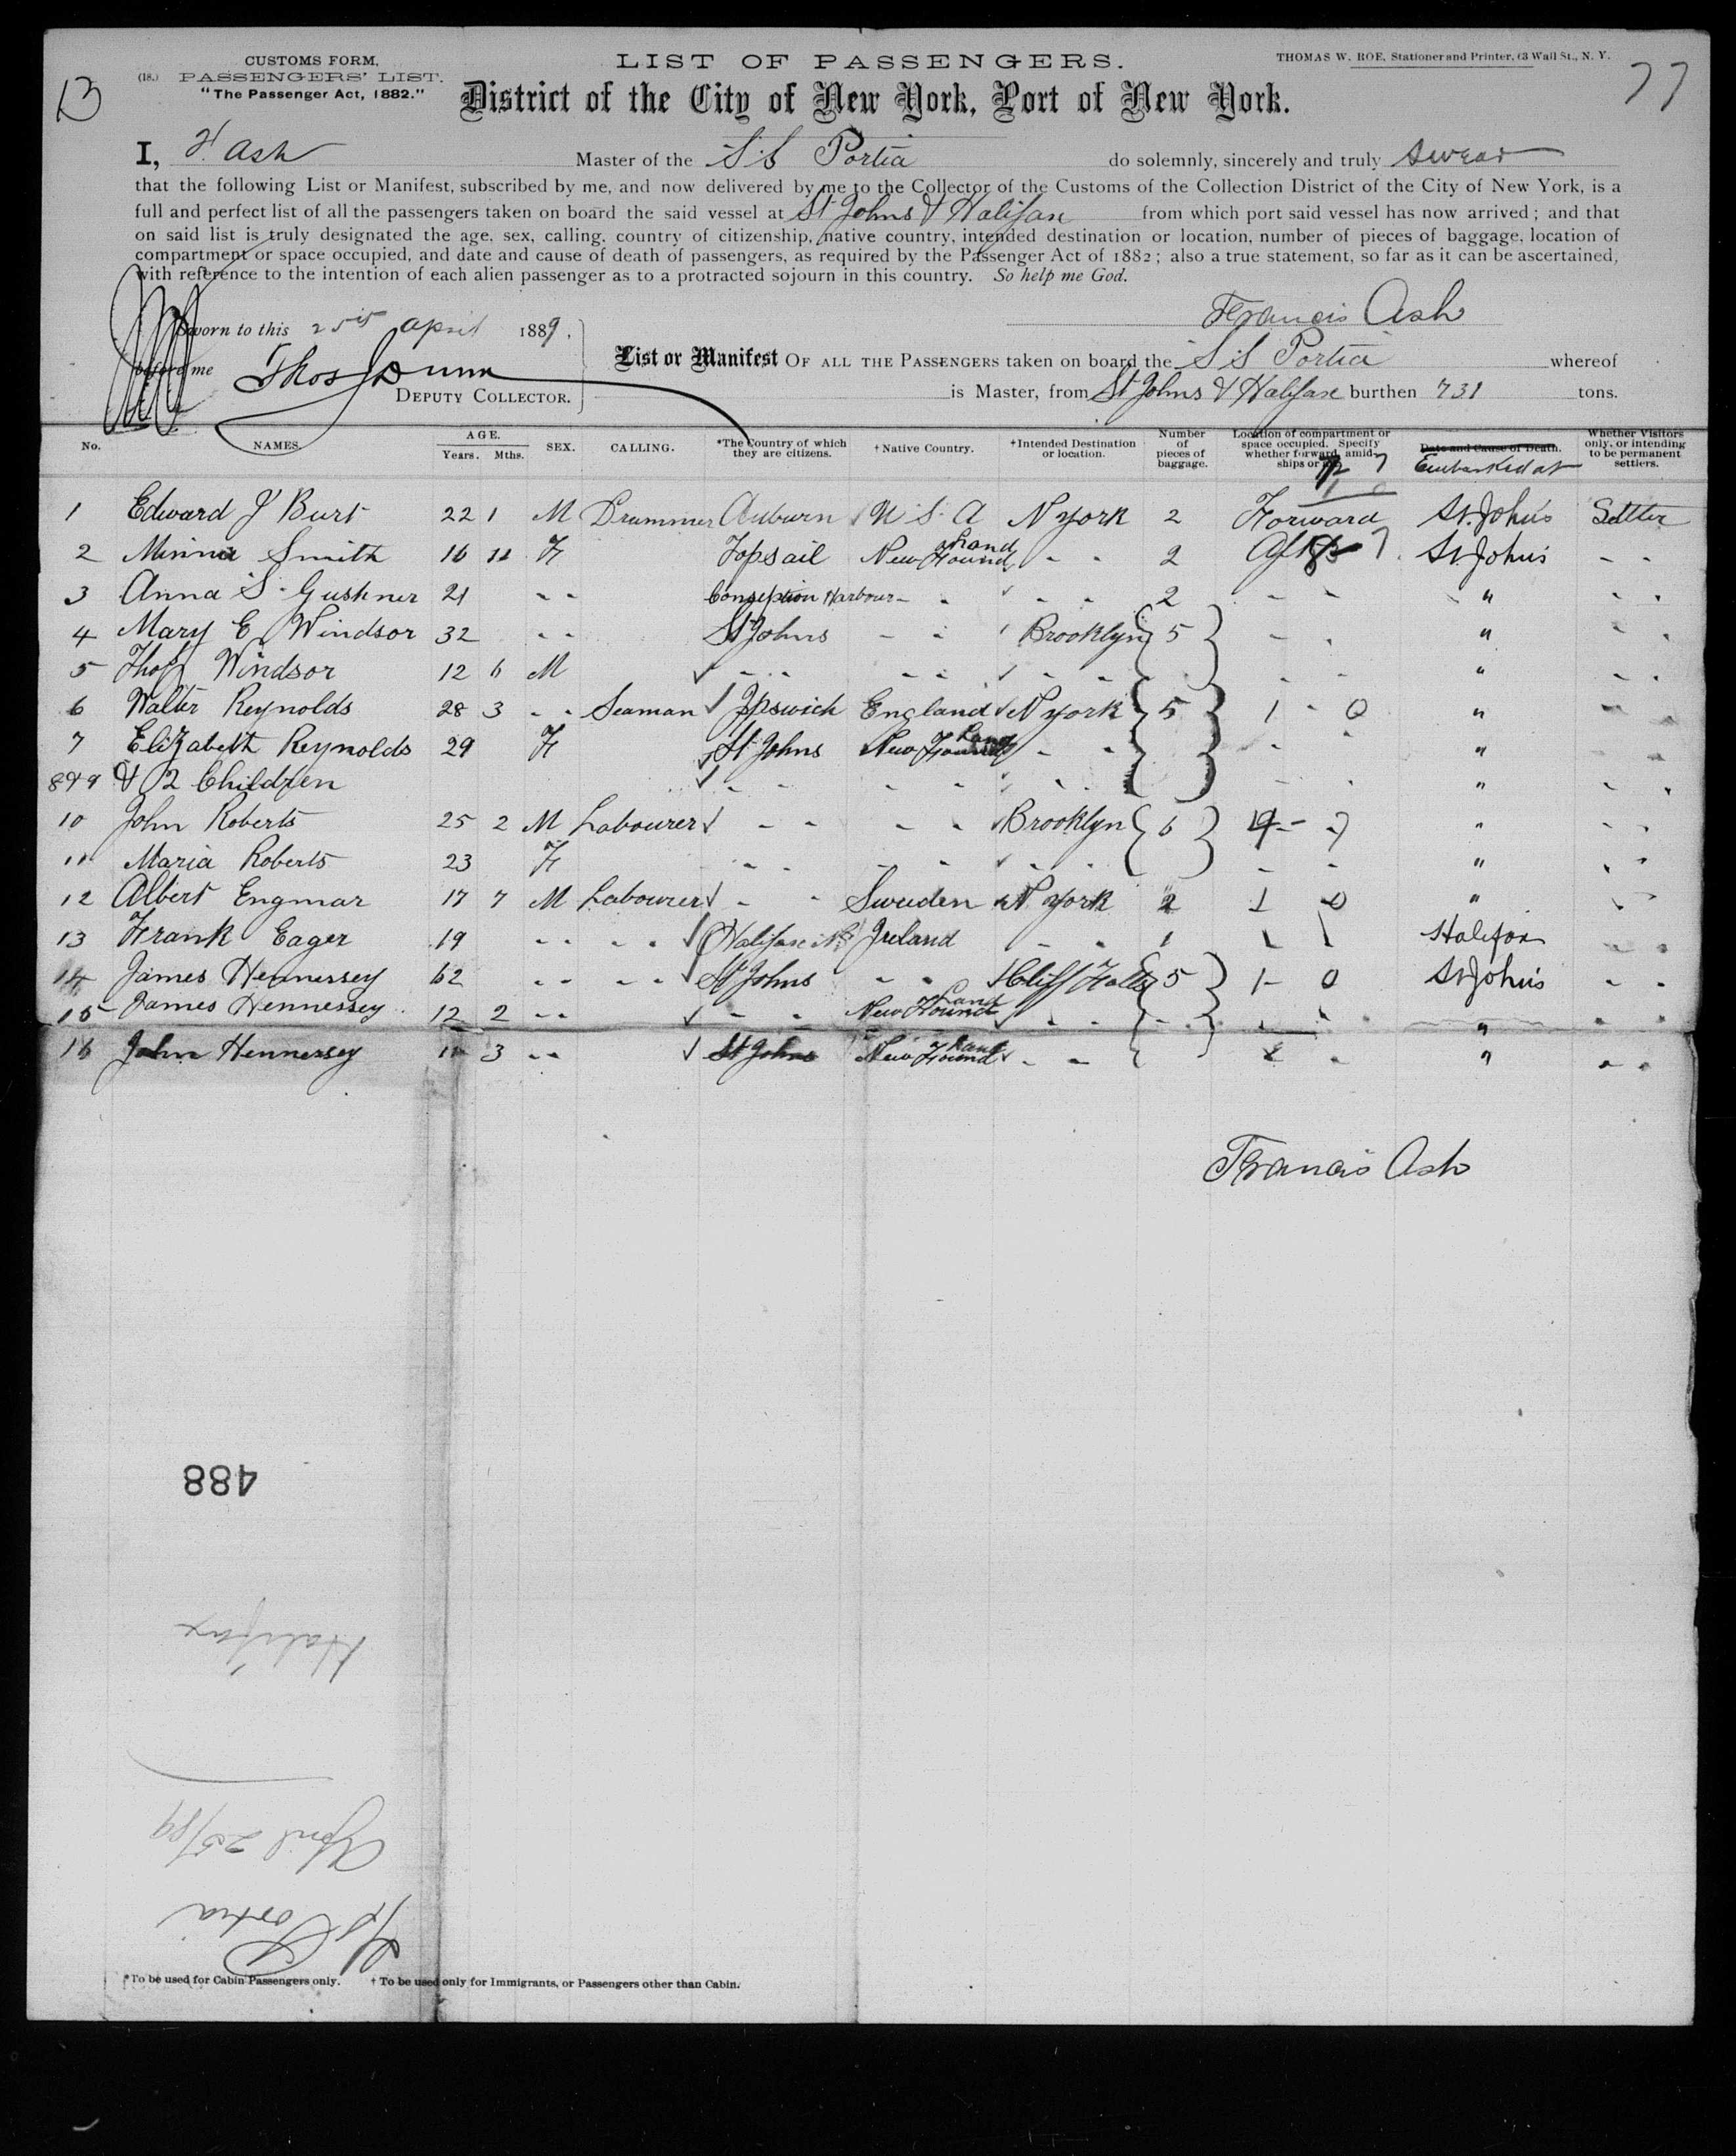 13
CUSTOMS FORM.
(18.) PASSENGERS' LIST.
"The Passenger Act, 1882."
LIST OF PASSENGERS.
THOMAS W. ROE, Stationer and Printer, 63 Wall St., N. Y.
77
District of the City of New York, Port of New York.
I, F. Ash Master of the S.S Portia do solemnly, sincerely and truly swear
that the following List or Manifest, subscribed by me, and now delivered by me to the Collector of the Customs of the Collection District of the City of New York, is a
full and perfect list of all the passengers taken on board the said vessel at St Johns & Halifax from which port said vessel has now arrived; and that
on said list is truly designated the age, sex, calling, country of citizenship, native country, intended destination or location, number of pieces of baggage, location of
compartment or space occupied, and date and cause of death of passengers, as required by the Passenger Act of 1882; also a true statement, so far as it can be ascertained,
with reference to the intention of each alien passenger as to a protracted sojourn in this country. So help me God.
Sworn to this 25th April 1889.
Francis Ash
before me Thos J Dunn
DEPUTY COLLECTOR.
List or Manifest OF ALL THE PASSENGERS taken on board the S S Portia whereof
is Master, from St Johns & Halifax burthen 731 tons.
No. NAMES. AGE. Years. Mths. SEX. CALLING. *The Country of which they are citizens. †Native Country. †Intended Destination or location. Number of pieces of baggage. Location of compartment or space occupied. Specify whether forward, amidships or Date and Cause of Death. Embarked at Whether Visitors only, or intending to be permanent settlers.
1 Edward J Burt 22 1 M Drummer Auburn U.S.A N York 2 Forward St. John's Settler
2 Minna Smith 16 11 F Topsail New Found Land - - 2 Aft St John's - -
3 Anna S. Gushner 21 - - Conseption Harbour - - - - 2 - - " - -
4 Mary E Windsor 32 - - St Johns - - Brooklyn 5 - - " - -
5 Thos Windsor 12 6 M - - - - - - - - " - -
6 Walter Reynolds 28 3 - - Seaman Ipswich England N York 5 1 - 0 " - -
7 Elizabeth Reynolds 29 F St Johns New Found Land - - - - " - -
8&9 & 2 Children - - - - - - - - " - -
10 John Roberts 25 2 M Labourer - - - - Brooklyn 6 " - -
11 Maria Roberts 23 F - - - - - - - - " - -
12 Albert Engmar 17 7 M Labourer - - Sweeden N York 2 1 0 " - -
13 Frank Eager 19 - - - - Halifax NS Ireland - - 1 Halifax - -
14 James Hennersey 62 - - - - St Johns - - Cliff Falls 5 1 - 0 St John's - -
15 James Hennessey 12 2 - - - - New Found Land - - - - " - -
16 John Hennersey 11 3 - - St Johns New Found Land - - " - -
Francis Ash
488
Halifax
April 25/89
SS Portia
*To be used for Cabin Passengers only. † To be used only for Immigrants, or Passengers other than Cabin.